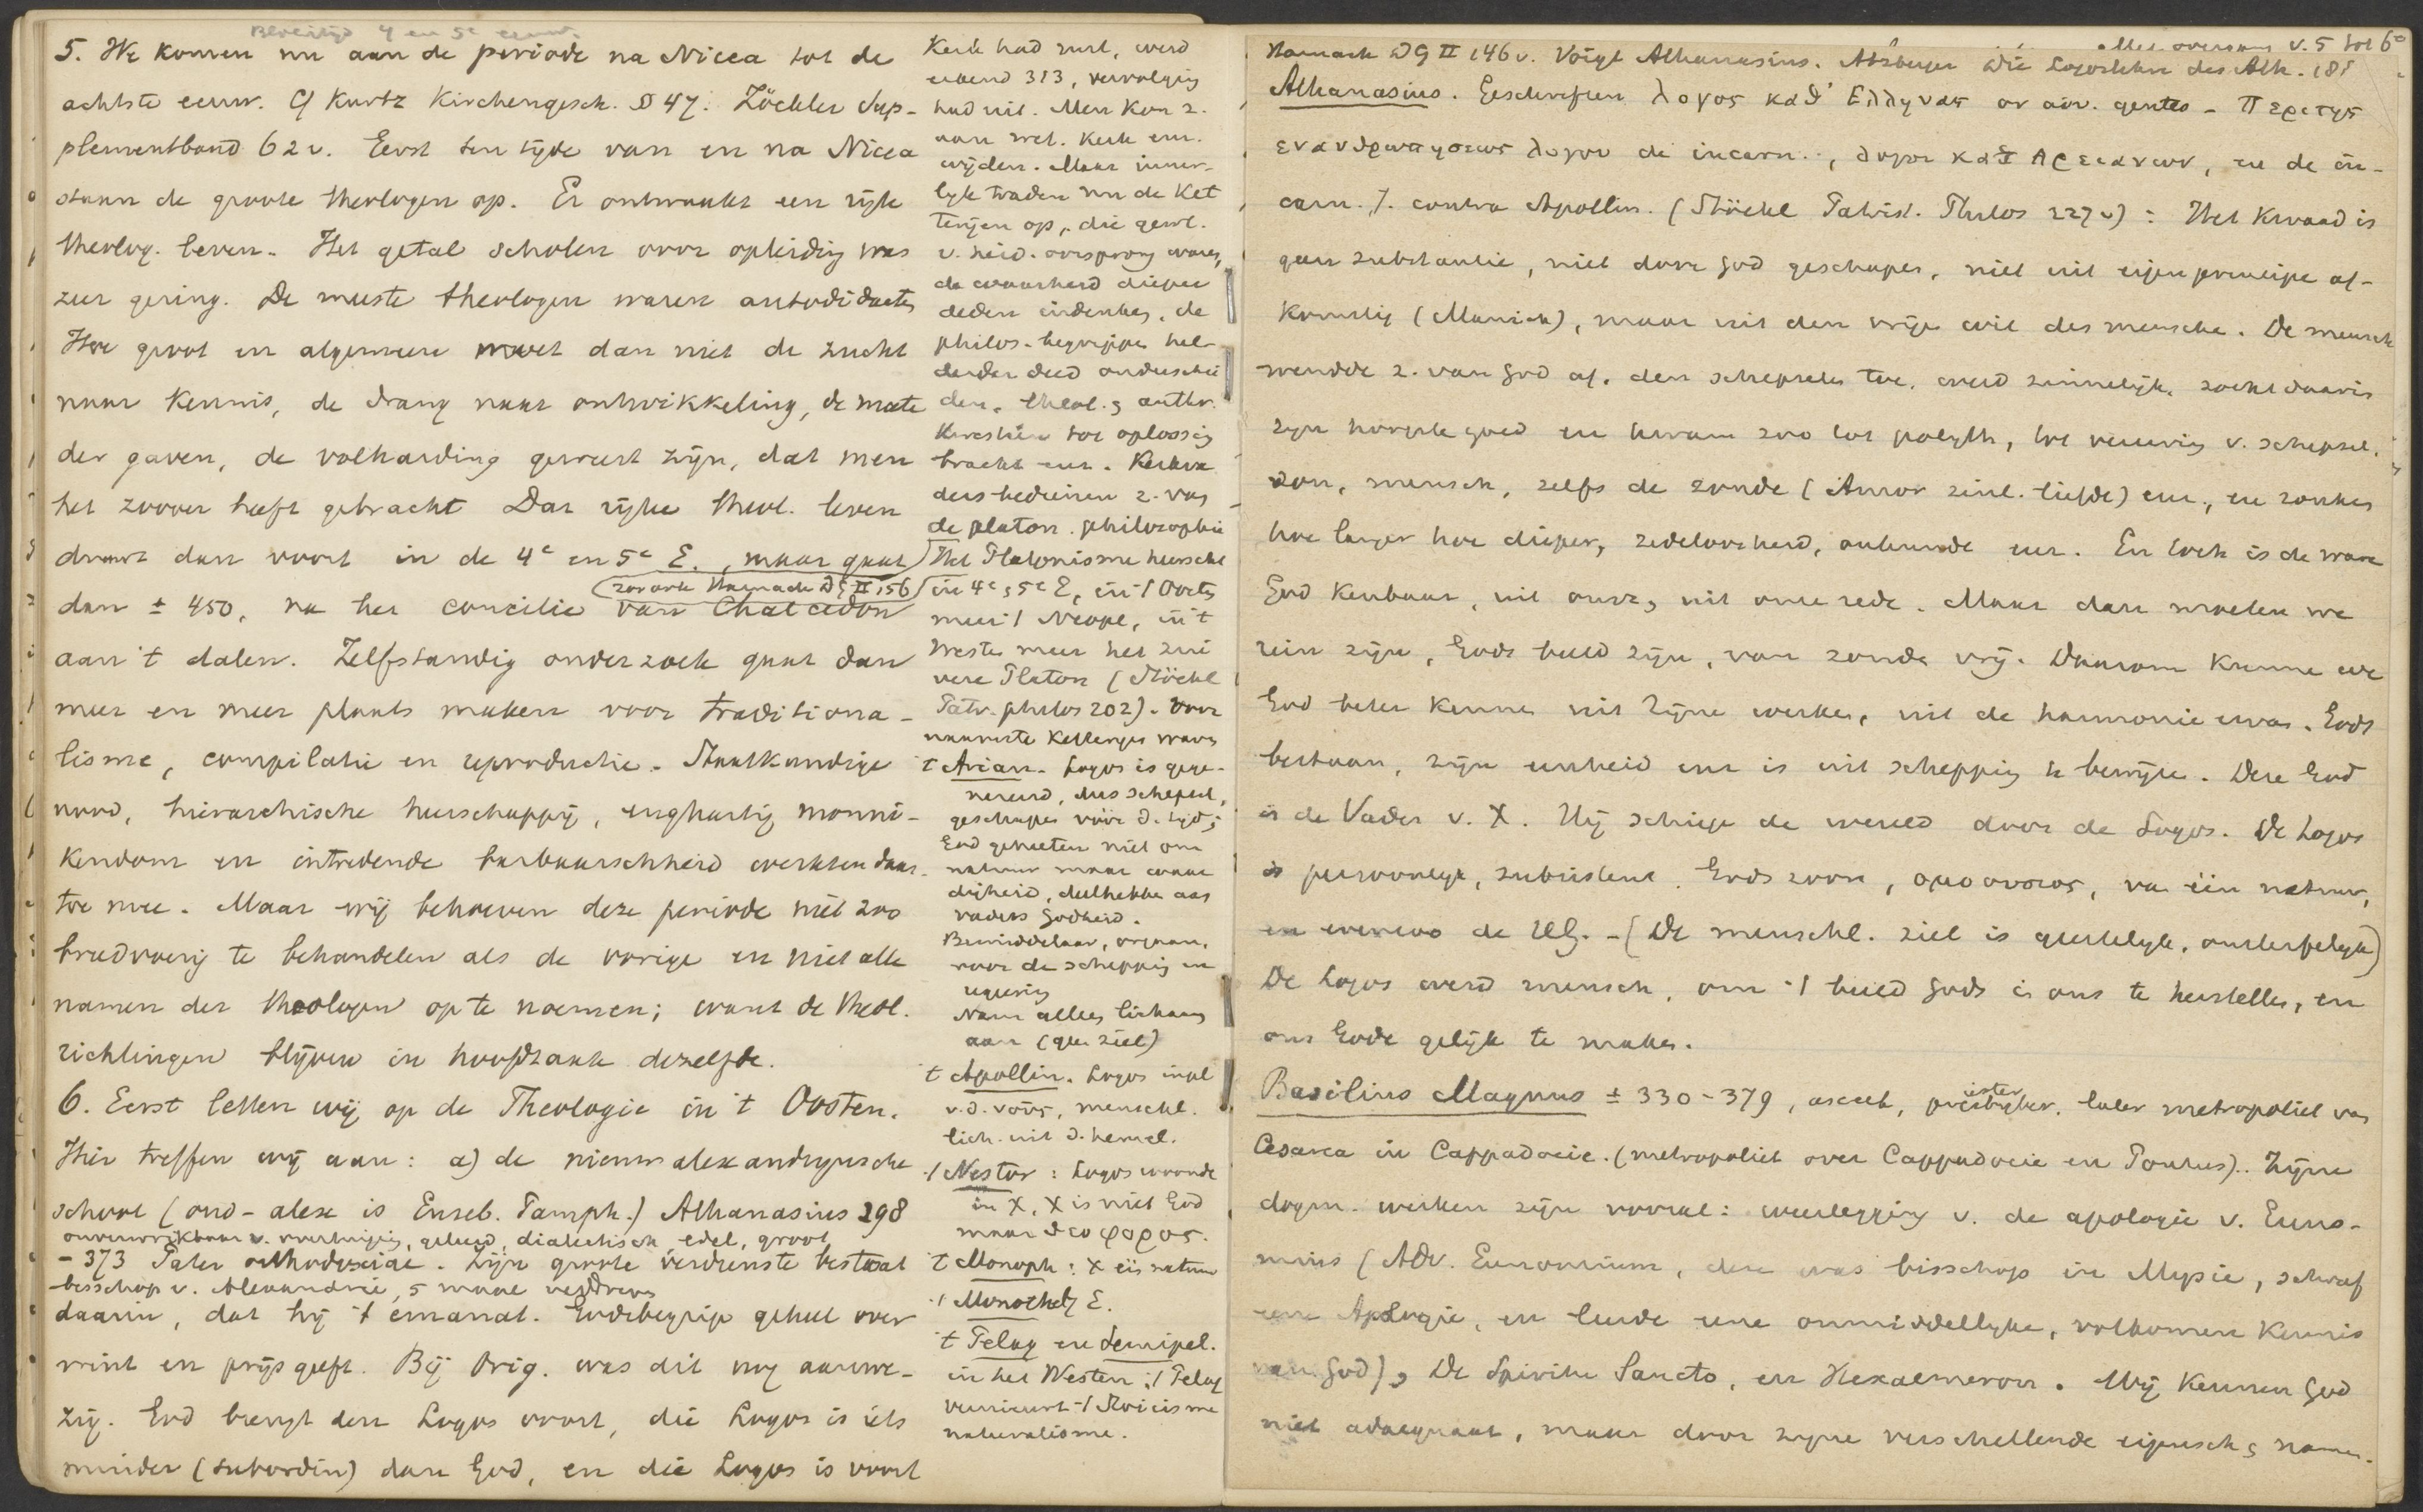 5. We komen nu aan de periode na Nicea tot de
achtste eeuw. Cf Kurtz Kirchengesch. § 47. Zöckler Sup-
plementband 62v. Eerst ten tijde van en na Nicea
staan de groote theologen op. Er ontwaakt een rijk
theolog. leven. Het getal scholen voor opleiding was
zeer gering. De meeste theologen waren autodidacten
Hoe groot en algemeen moet dan niet de zucht
naar kennis, de drang naar ontwikkeling, de mate
der gaven, de volharding geweest zijn, dat men
het zoover heeft gebracht Dat rijke theol. leven
duurt dan voort in de 4e en 5e E., maar gaat
(zoo ook Harnack DG II 156)
dan ± 450, na het concilie van Chalcedon
aan 't dalen. Zelfstandig onderzoek gaat dan
meer en meer plaats maken voor traditiona-
lisme, compilatie en reproductie. Staatkundige
nood, hierarchische heerschappij, enghartig monni-
kendom en intredende barbaarschheid werkten daar-
toe mee. Maar wij behoeven deze periode niet zoo
breedvoerig te behandelen als de vorige en niet alle
namen der theologen op te noemen; want de theol.
richtingen blijven in hoofdzaak dezelfde.
6. Eerst letten wij op de Theologie in 't Oosten.
Hier treffen wij aan: a) de nieuw alexandrijnsche
school (oud-alex is Euseb. Pamph.) Athanasius 298
onverwrikbaar v. overtuiging, geleerd, dialectisch edel, groot
- 373 Pater orthodoxiae. Zijn groote verdienste bestaat
bisschop v. Alexandrië, 5 maal verdreven
daarin, dat hij 't emanat. Godsbegrip geheel over
wint en prijs geeft. Bij Orig. was dit nog aanwe-
zig. God brengt den Logos voort, die Logos is iets
minder (subordin) dan God, en die Logos is voort
Kerk had rust, werd
erkend 313, vervolging
had uit. Men kon z.
aan wet. Kerk enz.
wijden. Maar inner-
lijk traden nu de ket
terijen op, die gewl.
v. heid. oorsprong waren,
de waarheid dieper
deden indenken, de
philos. begrippen hel-
derder deed onderschei
den, theol. & anthr.
kwestien tot oplossing
bracht enz. Kerkva
ders bedienen z. van
de platon. philosophie
Het Platonisme heerscht
in 4e & 5e E, in 't Oosten
meer 't Neopl, in 't
Westen meer het zui
vere Platon (Stöckl
Patr. philos 202). Voor
naamste Ketterijen waren
't Arian. Logos is gege-
nereerd, dus schepsel,
geschapen vóór d. tijd;
God geheeten niet om
natuur maar waar
digheid, deelhebben aan
vaders Godheid.
Bemiddelaar, orgaan,
voor de schepping en
regering
Nam alleen lichaam
aan (geen ziel)
't Apollin. Logos inpl
v. d. νοῦς, menschl.
lich. uit d. hemel.
't Nestor: Logos woonde
in X, X is niet God
maar θεοφορος.
't Monoph: X één natuur
't Monothel 7 E.
't Pelag en Semipel.
in het Westen; 't Pelag
vernieuwt 't Stoicisme
naturalisme.
Harnack DG II 146v. Voigt Athanasius. Atzberger Die Logoslehre des Ath. 181
Athanasius. Geschriften λογος καθ' Ελληνας or adv. gentes - Περι της
ενανθρωπησεως λογου de incarn., λογοι κατ Αρειανων, en de in-
carn. J. contra Apollin. (Stöckl Patrist. Philos 227v): Het kwaad is
geen substantie, niet door God geschapen, niet uit eigen principe af-
komstig (Manich), maar uit den vrijen wil des menschen. De mensch
wendde z. van God af, den schepselen toe, werd zinnelijk, zocht daarin
zijn hoogste goed en kwam zoo tot polyth, tot vereering v. schepsel,
zon, mensch, zelfs de zonde (Amor zinl. liefde) enz, en zonken
hoe langer hoe dieper, zedeloosheid, onkunde enz. En toch is de ware
God kenbaar, uit onze rede. Maar dan moeten we
rein zijn, Gods beeld zijn, van zonde vrij. Daarom kunnen we
God beter kennen uit Zijne werken, uit de harmonie ervan. Gods
bestaan, zijn eenheid enz is uit schepping te bewijzen. Deze God
is de Vader v. X. Hij schiep de wereld door de Logos. De Logos
is persoonlijk, subsistent. Gods zoon, ομοουσιος, van één natuur,
en evenzoo de HG. - (De menschl. ziel is geestelijk, onsterfelijk)
De Logos werd mensch, om 't beeld Gods in ons te herstellen, en
ons Gode gelijk te maken.
Basilius Magnus ± 330-379, asceet, presbyter, later metropoliet van
Cesarea in Cappadocie. (metropoliet over Cappadocie en Pontus). Zijne
dogm. werken zijn vooral: weerlegging v. de apologie v. Euno-
mius (Adv. Eunomium, deze was bisschop in Mysie, schreef
eene Apologie, en leerde eene onmiddellijke, volkomen kennis
van God), De Spiritu Sancto, en Hexaemeron. Wij kennen God
niet adaequaat, maar door zijne verschillende eigensch & namen.